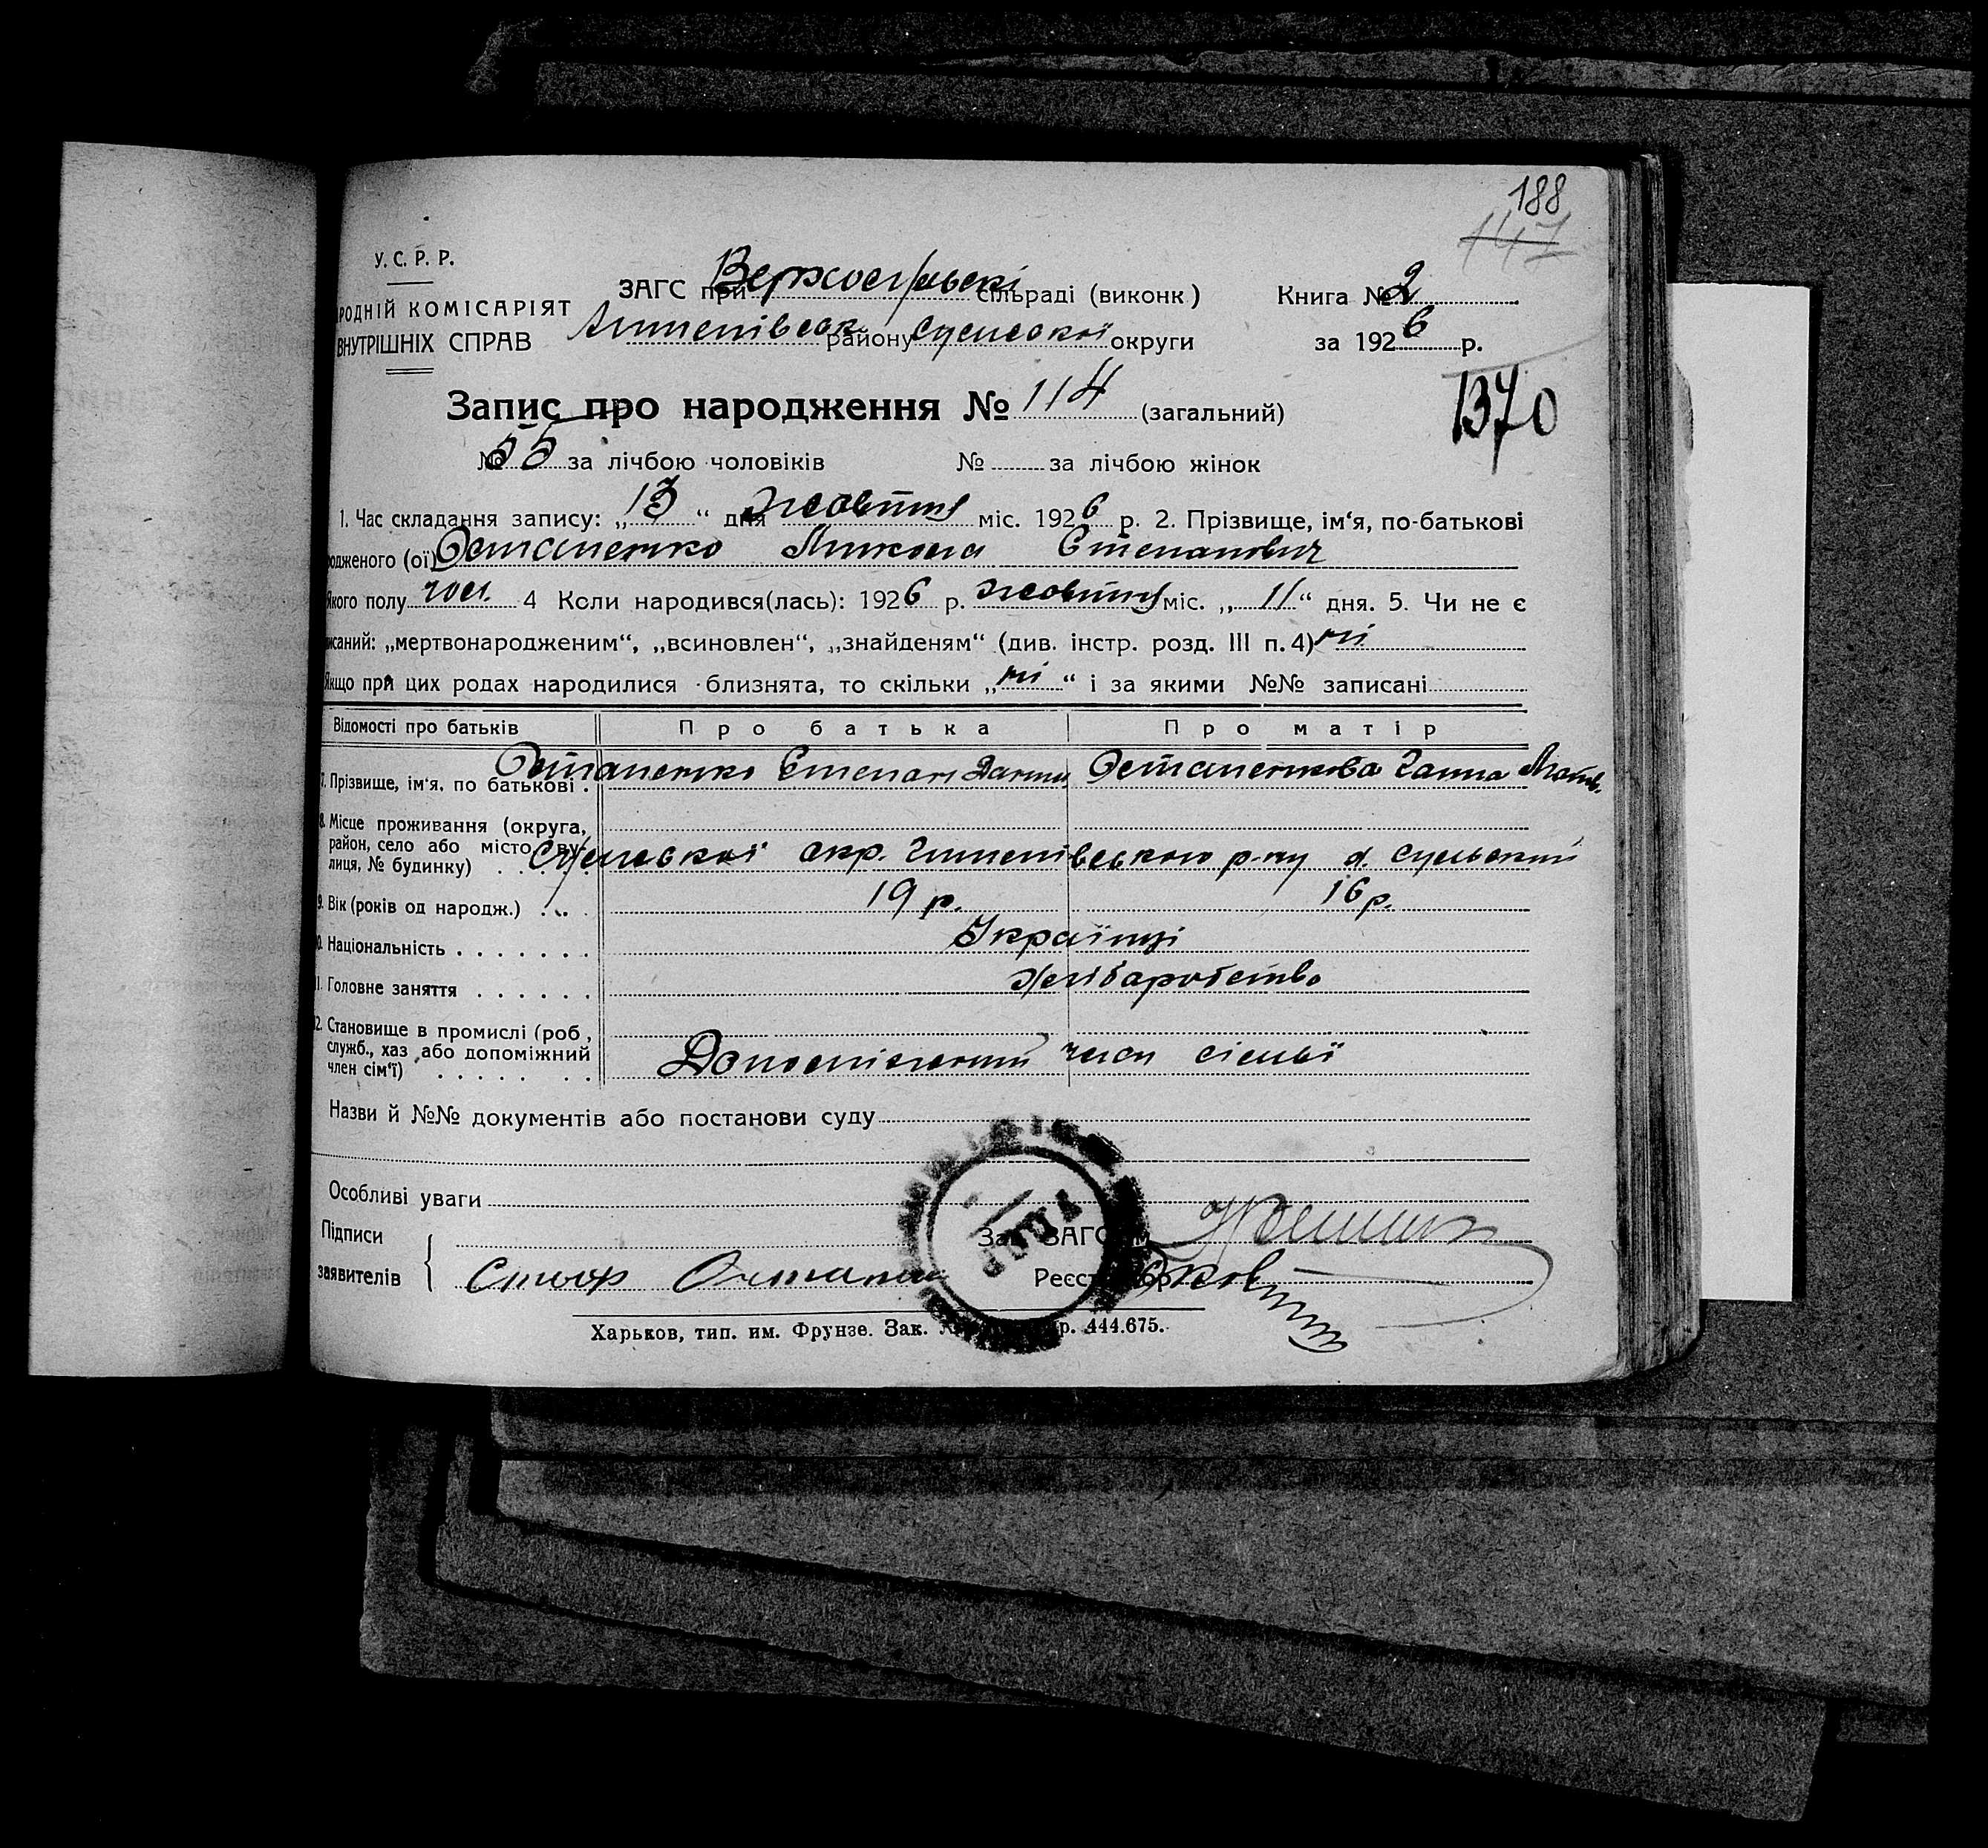 188
147
У. С. Р. Р.
РОДНІЙ КОМІСАРІЯТ
ВНУТРІШНІХ СПРАВ
ЗАГС при сільраді (виконк)
району Сумської округи
Книга № 2
за 1926 р.
1370
Запис про народження № 114 (загальний)
№ 55 за лічбою чоловіків № за лічбою жінок
1. Час складання запису: „13“ дня жовтня міс. 1926 р. 2. Прізвище, ім‘я, по-батькові
одженого (ої) Остапенко Микола Степанович
Якого полу чол. 4 Коли народився(лась): 1926 р. жовтня міс. „11“ дня. 5. Чи не є
исаний: „мертвонародженим“, „всиновлен“, „знайденям“ (див. інстр. розд. III п. 4) ні
Якщо при цих родах народилися близнята, то скільки „ні“ і за якими №№ записані
Відомості про батьків Про батька Про матір
7. Прізвище, ім‘я, по батькові . Остапенко Степан Остапенкова Ганна Матв.
8. Місце проживання (округа,
район, село або місто, ву-
лиця, № будинку) Сумської окр. р-ну
9. Вік (років од народж.) 19 р. 16 р.
10. Національність Українці
11. Головне заняття Хліборобство
12. Становище в промислі (роб,
служб., хаз або допоміжний
член сім‘ї) член сімьї
Назви й №№ документів або постанови суду
Особливі уваги
Підписи
заявителів
Зав. ЗАГС‘ом
Реєстратор
Харьков, тип. им. Фрунзе. Зак. р. 444.675.